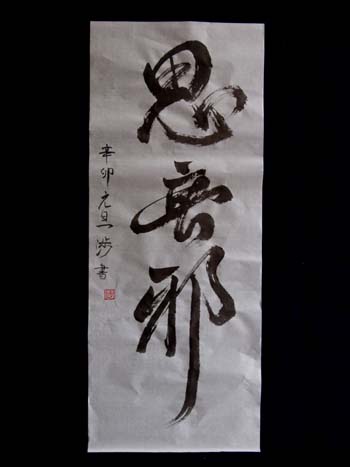 思無邪
辛卯元旦
書